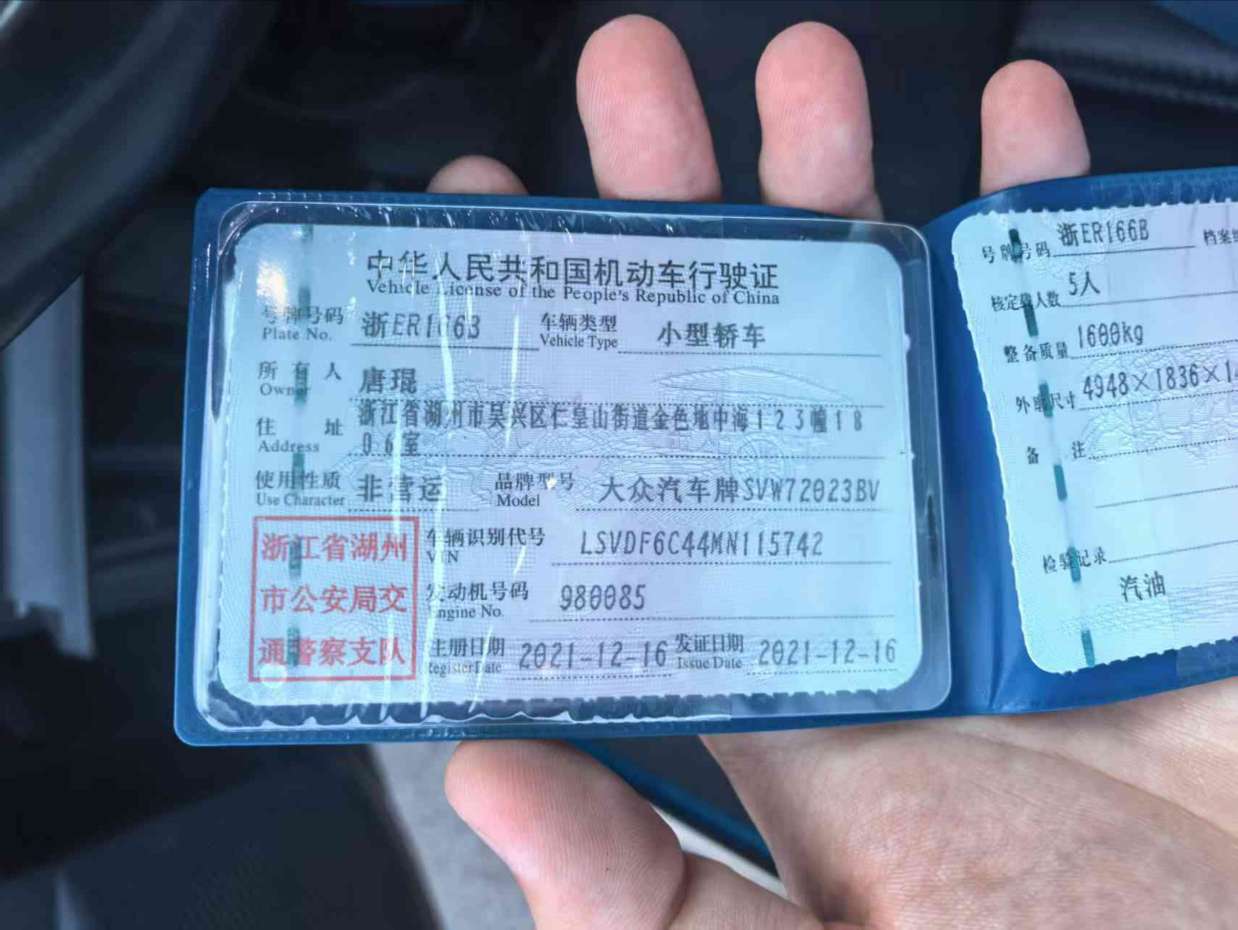 中华人民共和国机动车行驶证
Vehicle License of the People's Republic of China
号牌号码 浙ER1663 车辆类型 小型轿车
Plate No. Vehicle Type
所有人 唐琨
Owner
住址 浙江省湖州市吴兴区仁皇山街道金色地中海123幢18
Address 06室
使用性质 非营运 品牌型号 大众汽车牌SVW72023BV
Use Character Model
车辆识别代号 LSVDF6C44MN115742
VIN
发动机号码 980085
Engine No.
注册日期 2021-12-16 发证日期 2021-12-16
Register Date Issue Date
浙江省湖州
市公安局交
通警察支队
号牌号码 浙ER166B 档案
核定载人数 5人
整备质量 1600kg
外廓尺寸 4948×1836×14
备注
检验记录
汽油